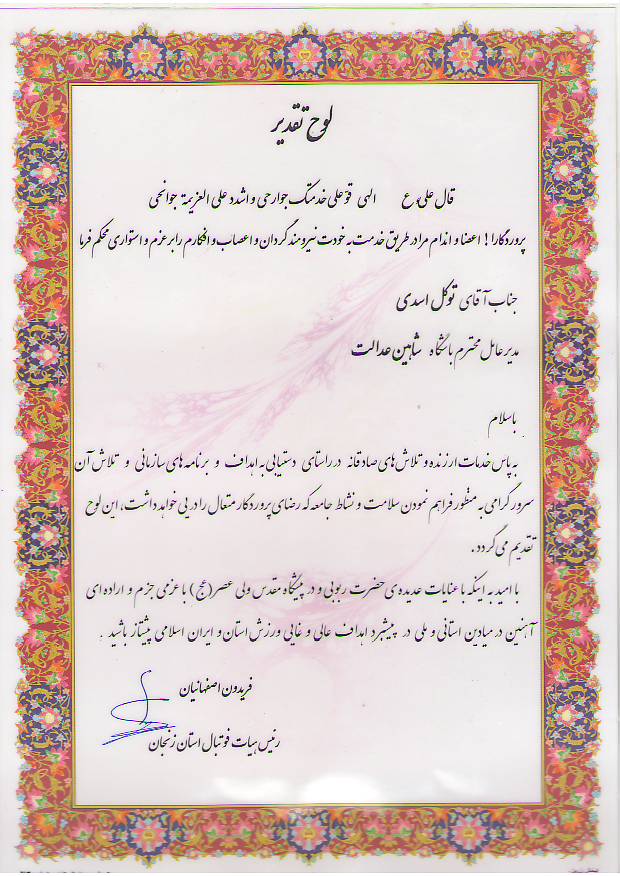 لوح تقدیر
قال علی ع الهی قو علی خدمتک جوارحی و اشدد علی العزیمة جوانحی
پروردگارا! اعضا و اندام مرا در طریق خدمت به خودت نیرومند گردان و اعصاب و افکارم را بر عزم و استواری محکم فرما
جناب آقای توکل اسدی
مدیر عامل محترم باشگاه شاهین عدالت
با سلام
به پاس خدمات ارزنده و تلاش های صادقانه در راستای دستیابی به اهداف و برنامه های سازمانی و تلاش آن
سرور گرامی به منظور فراهم نمودن سلامت و نشاط جامعه که رضای پروردگار متعال را در پی خواهد داشت، این لوح
تقدیم می گردد.
با امید به اینکه با عنایات عدیده ی حضرت ربوبی و در پیشگاه مقدس ولی عصر (عج) با عزمی جزم و اراده ای
آهنین در میادین استانی و ملی در پیشبرد اهداف عالی و غایی ورزش استان و ایران اسلامی پیشتاز باشید.
فریدون اصفهانیان
رئیس هیات فوتبال استان زنجان